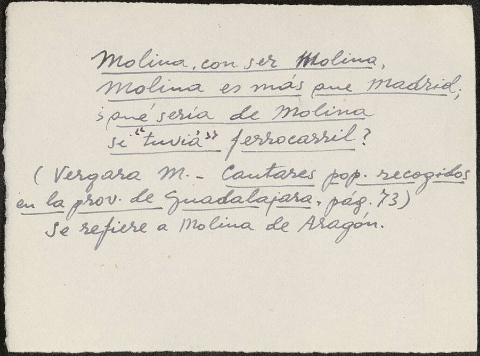 Molina, con ser Molina,
Molina es más que Madrid;
¿qué sería de Molina
si "tuviá" ferrocarril?
(Vergara M.- Cantares pop. recogidos
en la prov. de Guadalajara, pág. 73)
Se refiere a Molina de Aragón.